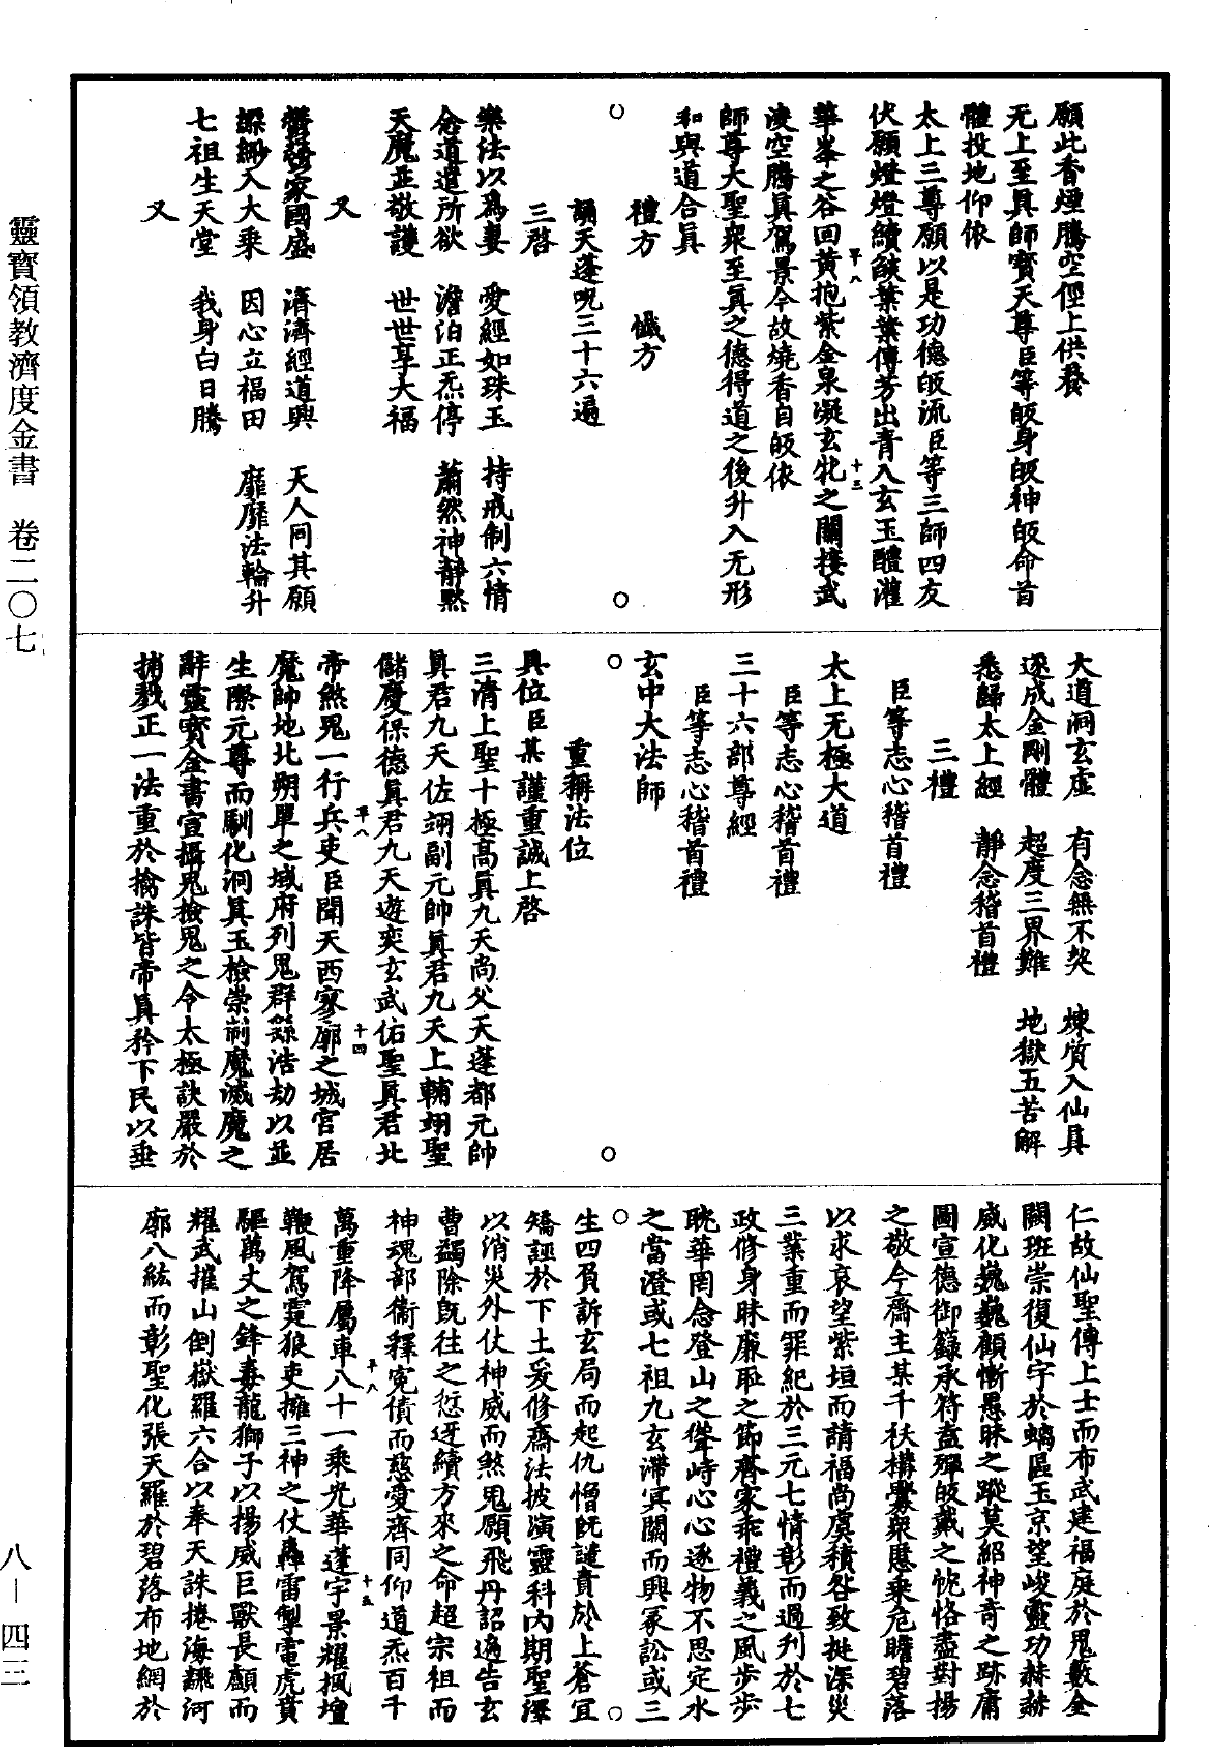 願此香煙騰空徑上供養
无上至眞師寶天尊臣等皈身皈神皈命首
體投地仰依
太上三尊願以是功德皈流臣等三師四友
伏願燈燈續燄葉葉傳芳出青入玄玉醴灌
華峯之谷回黃抱紫金泉凝玄牝之關接武
凌空騰眞駕景今故燒香自皈依
師尊大聖衆至眞之德得道之後升入无形
和與道合眞
禮方　懺方
誦天蓬呪三十六遍
三啓
樂法以爲妻　愛經如珠玉　持戒制六情
念道遣所欲　澹泊正炁停　蕭然神靜默
天魔並敬護　世世享大福
又
鬱鬱家國盛　濟濟經道興　天人同其願
縹緲入大乘　因心立福田　靡靡法輪升
七祖生天堂　我身白日騰
又
大道洞玄虛　有念無不契　煉質入仙眞
遂成金剛體　超度三界難　地獄五苦解
悉歸太上經　靜念稽首禮
三禮
臣等志心稽首禮
太上无極大道
臣等志心稽首禮
三十六部尊經
臣等志心稽首禮
玄中大法師
重稱法位
具位臣某謹重誠上啓
三清上聖十極高眞九天尚父天蓬都元帥
眞君九天佐翊副元帥眞君九天上輔翊聖
儲慶保德眞君九天遊奕玄武佑聖眞君北
帝煞鬼一行兵吏臣聞天西寥廓之城宮居
魔帥地北朔單之域府列鬼群繇浩劫以並
生際元尊而馴化洞眞玉檢崇制魔滅魔之
辭靈寶金書宣攝鬼檢鬼之令太極訣嚴於
捕戮正一法重於擒誅皆帝眞矜下民以垂
仁故仙聖傳上士而布武建福庭於鬼數金
闕班崇復仙宇於蝸區玉京望峻靈功赫赫
威化巍巍顧慚愚昧之蹤莫紹神奇之跡庸
圖宣德御籙承符盍殫皈戴之忱恪盡對揚
之敬今齋主某千袄構釁衆慝乘危瞻碧落
以求哀望紫垣而請福尚虞積咎致挻深災
三業重而罪紀於三元七情彰而過列於七
政修身昧廉恥之節齊家乖禮義之風步步
眺華罔念登山之聳峙心心逐物不思定水
之當澄或七祖九玄滯冥關而興冢訟或三
生四負訴玄局而起仇憎旣譴責於上蒼宜
矯誣於下土爰修齋法披演靈科內期聖澤
以消災外仗神威而煞鬼願飛丹詔遍告玄
曹蠲除旣往之愆迓續方來之命超宗祖而
神魂部衛釋冤債而慈愛齊同仰道炁百千
萬重降屬車八十一乘光華蓬宇景耀楓壇
鞭風駕霆狼吏擁三神之仗轟雷掣電虎賁
驅萬丈之鋒毒龍獅子以揚威巨獸長顱而
耀武摧山倒嶽羅六合以奉天誅捲海飜河
廓八紘而彰聖化張天羅於碧落布地網於
平八
十三
平八
十四
平八
十五
靈寶領教濟度金書　卷二〇七
八—四三